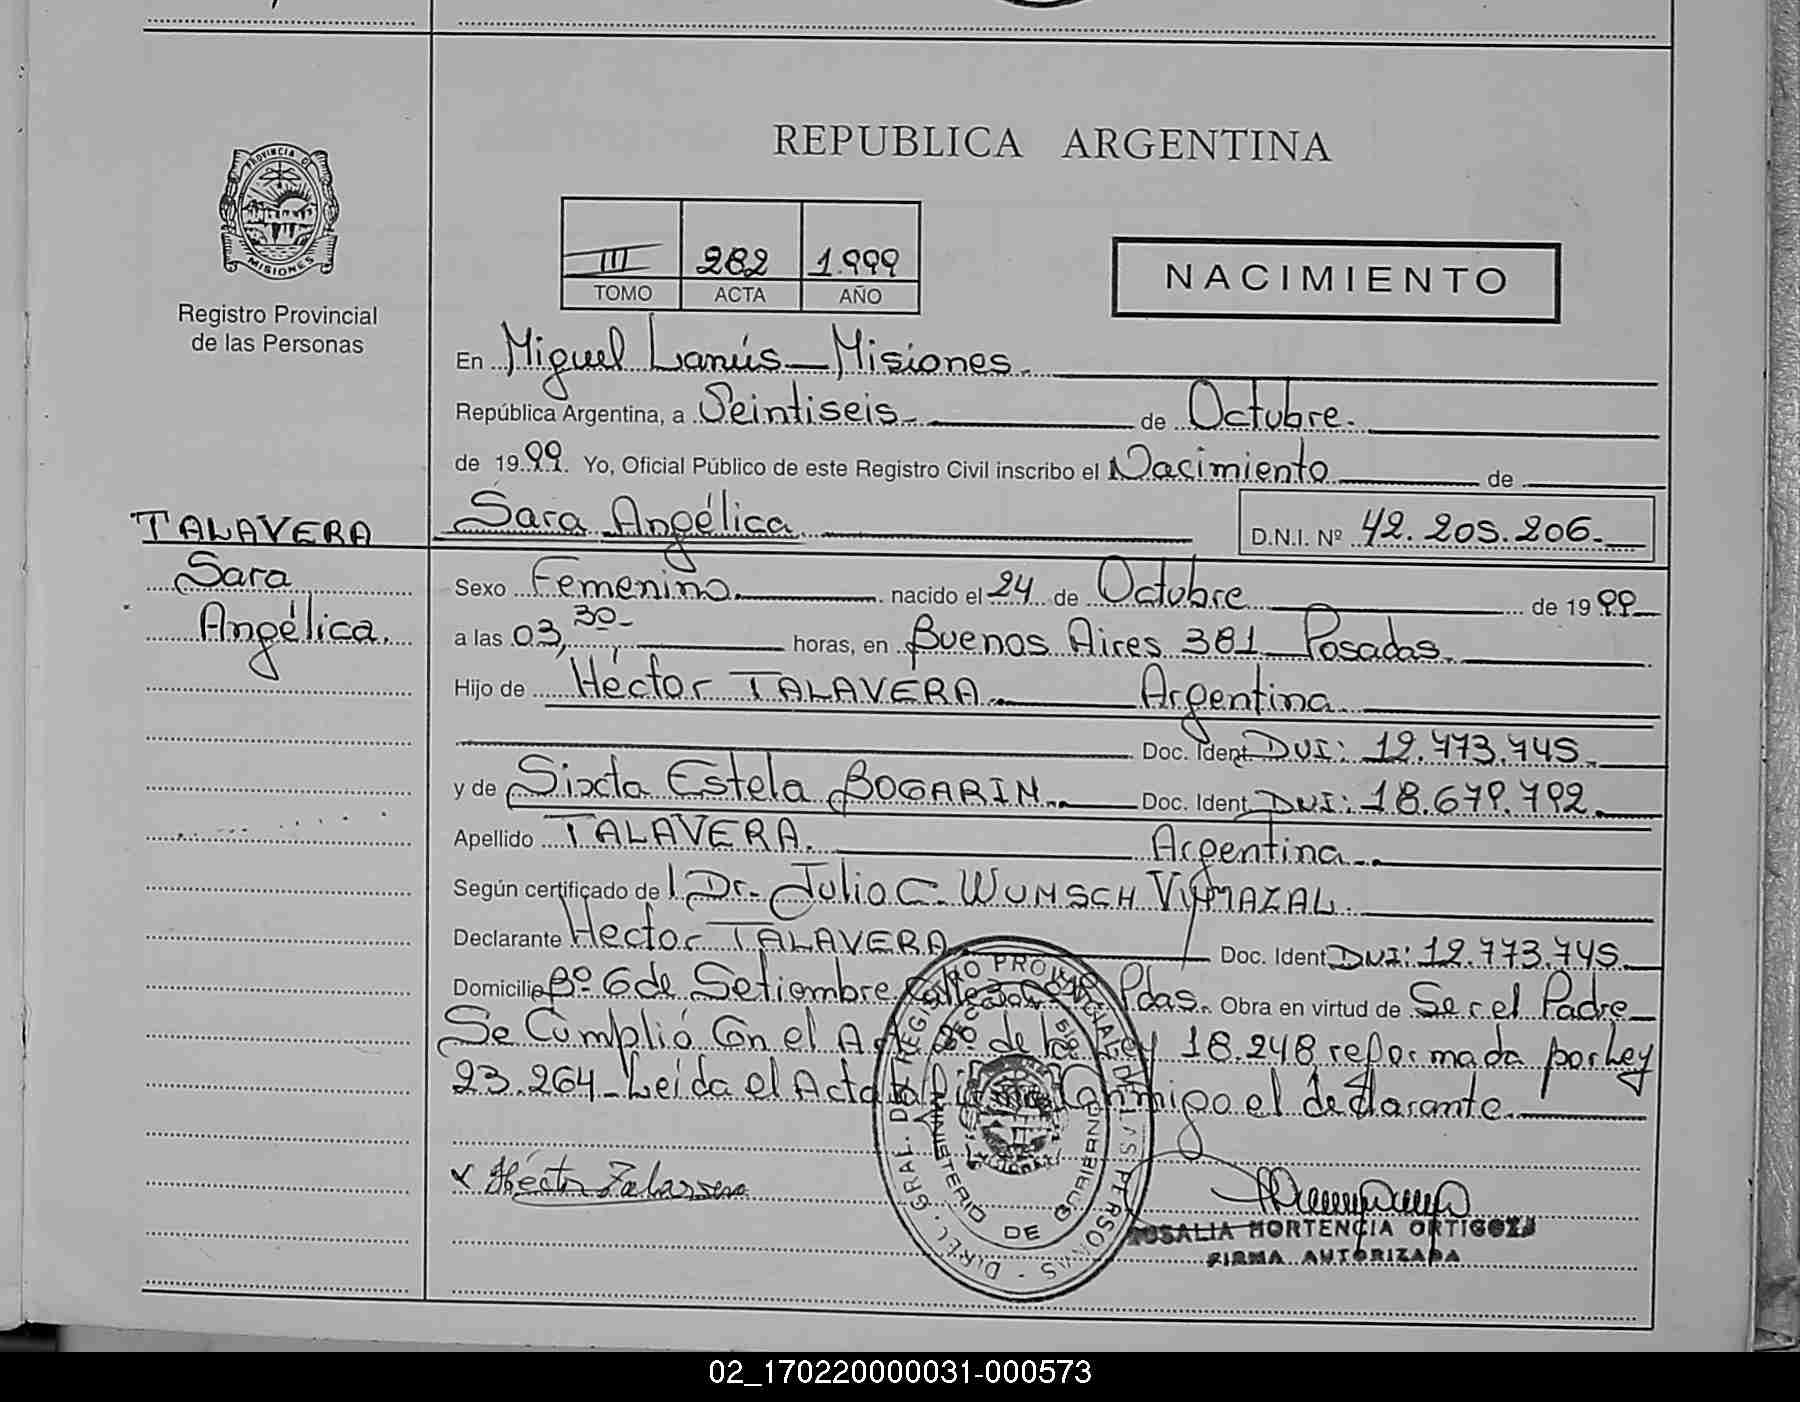 REPUBLICA ARGENTINA
PROVINCIA D
MISIONES
Registro Provincial
de las Personas
III 282 1.999
TOMO ACTA AÑO
NACIMIENTO
En Miguel Lanús - Misiones.
República Argentina, a Veintiseis de Octubre.
de 1999. Yo, Oficial Público de este Registro Civil inscribo el Nacimiento de
TALAVERA Sara Angélica D.N.I. Nº 42.205.206.
Sara
Angélica.
Sexo Femenino nacido el 24 de Octubre de 1999
a las 03,30- horas, en Buenos Aires 381 Posadas.
Hijo de Héctor TALAVERA Argentina
Doc. Ident. DNI: 12.773.745.
y de Sixta Estela BOGARIN. Doc. Ident. DNI: 18.679.792.
Apellido TALAVERA. Argentina.
Según certificado de Dr. Julio C. WUNSCH VYMAZAL.
Declarante Hector TALAVERA Doc. Ident. DNI: 12.773.745.
Domicilio Bº 6 de Setiembre Pdas. Obra en virtud de Ser el Padre
Se Cumplió Con el de la Ley 18.248 reformada por Ley
23.264 - Leída el Acta la firma Conmigo el declarante.
x Héctor Talavera
DIREC. GRAL. DE REGISTRO PROVINCIAL DE LAS PERSONAS
MINISTERIO DE GOBIERNO
MISIONES
ROSALIA HORTENCIA ORTIGOZA
FIRMA AUTORIZADA
02_170220000031-000573